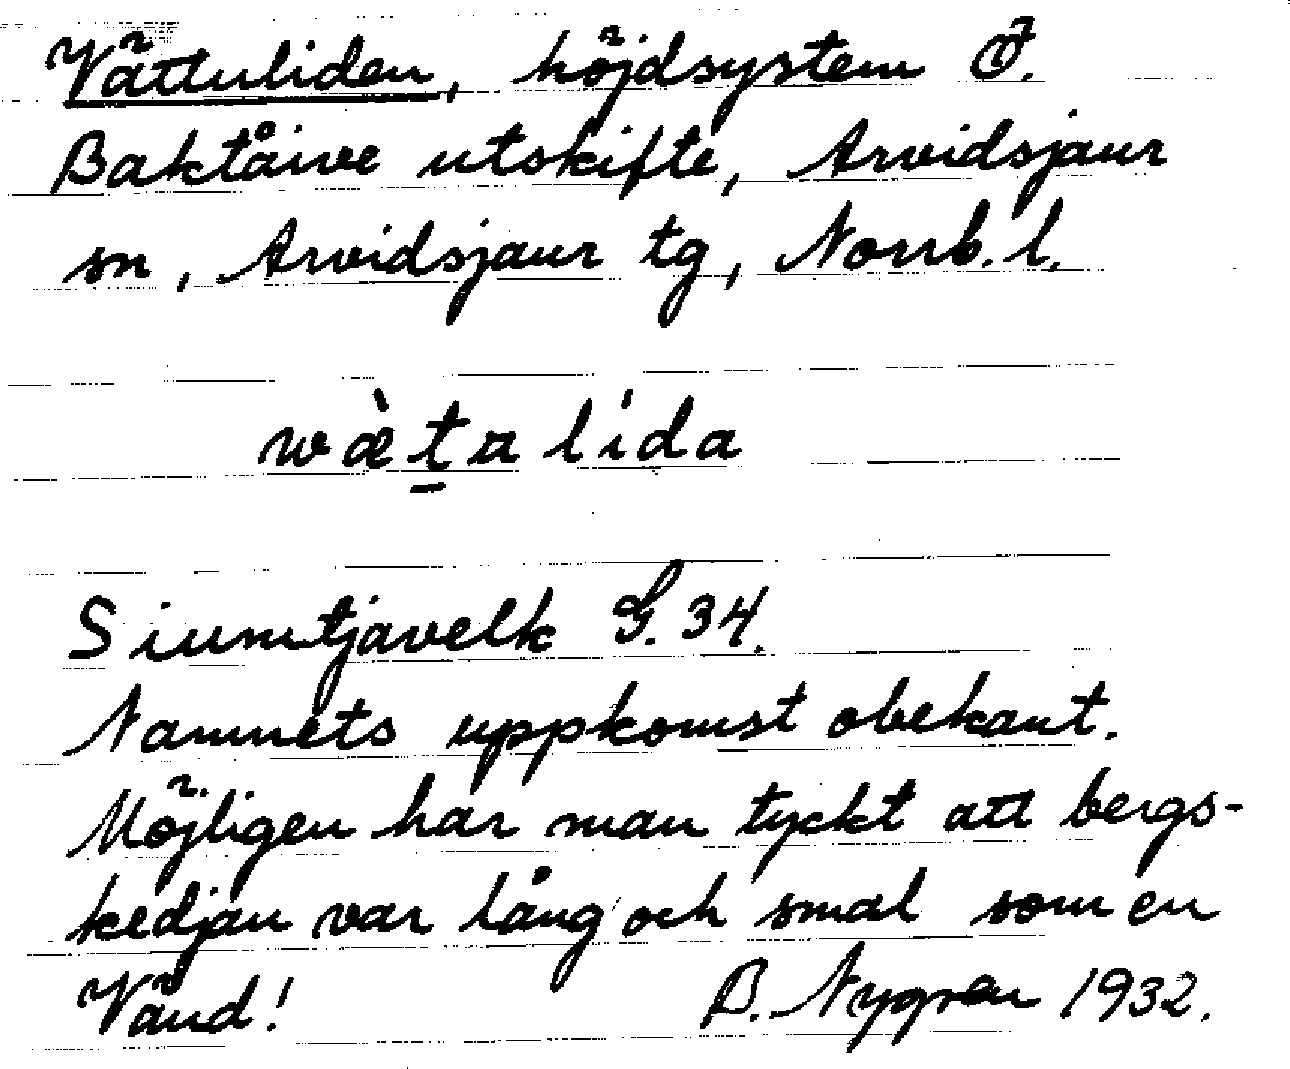 Vättuliden, höjdsystem Ö.
Baktåive utskifte, Arvidsjaur
sn, Arvidsjaur tg, Norrb. l.
wæ̀ṯa lída
Siumtjavelk G. 34.
Namnets uppkomst obekant.
Möjligen har man tyckt att bergs-
kedjan var lång och smal som en
Vänd! B. Nygren 1932.